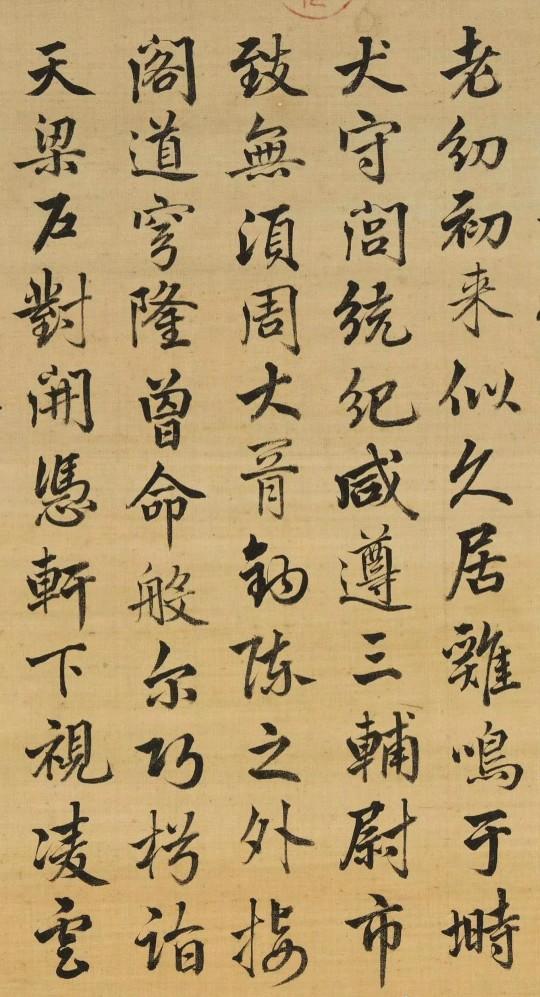 老幼初来似久居雞鳴于塒
犬守閭統紀咸遵三輔尉市
致無須周大胥鈎陳之外接
閣道穹隆曾命般尔巧枍詣
天梁石對開憑軒下視凌雲